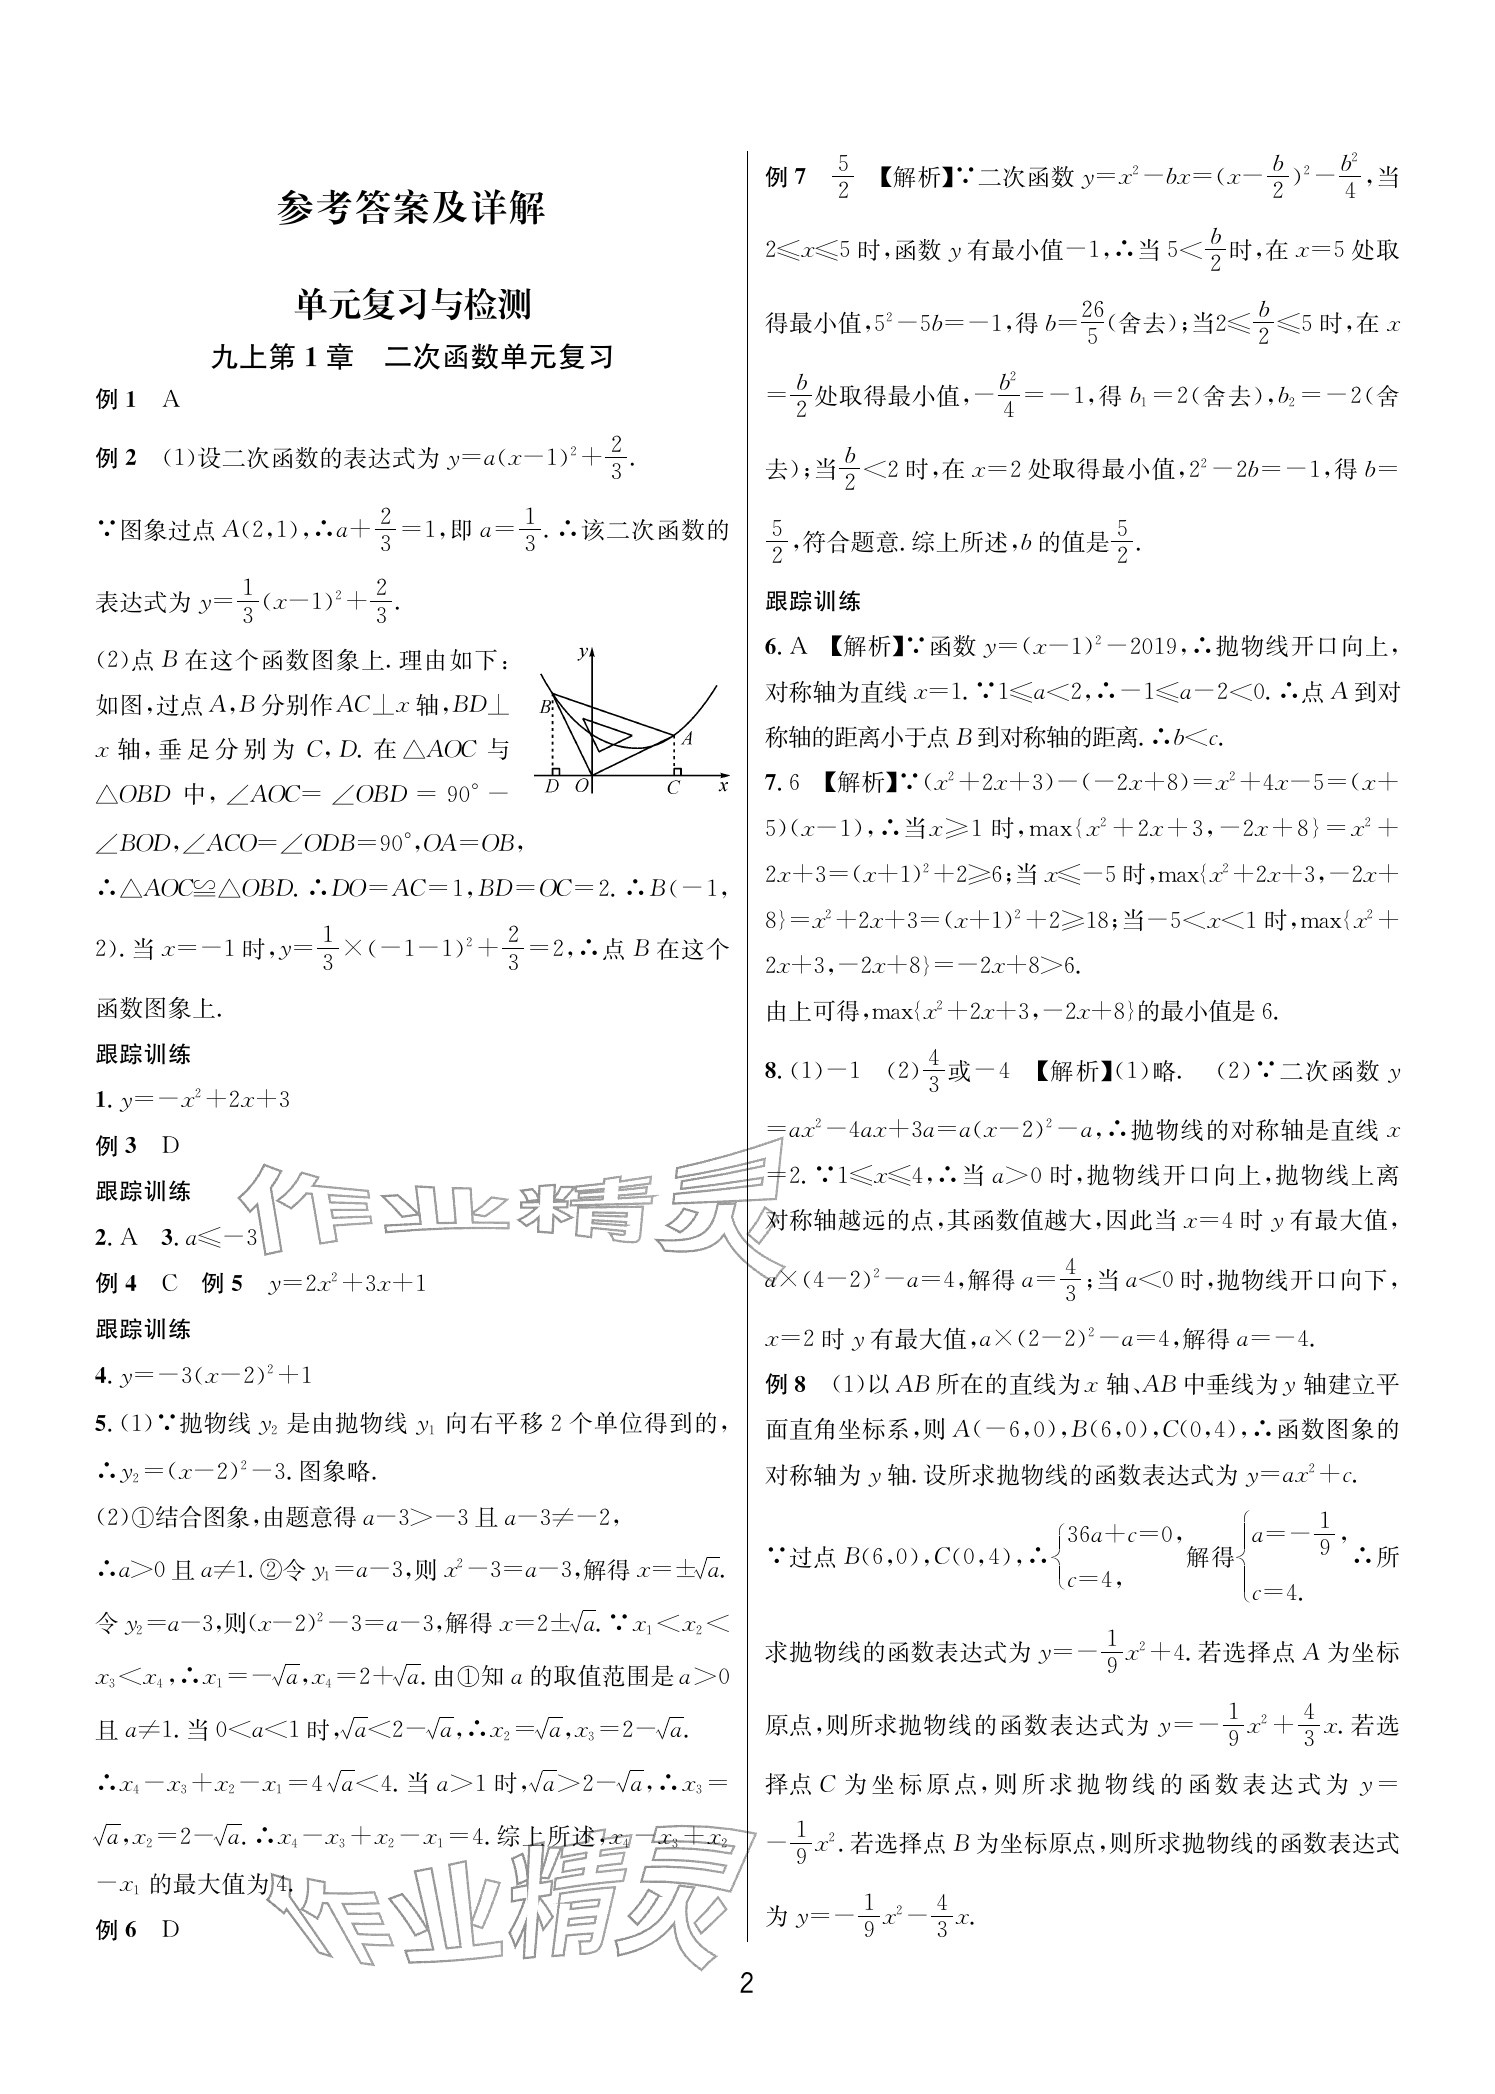 参考答案及详解
单元复习与检测
九上第1章 二次函数单元复习
例1 A
例2 (1)设二次函数的表达式为 y=a(x-1)²+2/3.
∵图象过点 A(2,1),∴a+2/3=1,即 a=1/3.∴该二次函数的
表达式为 y=1/3(x-1)²+2/3.
(2)点 B 在这个函数图象上.理由如下:
如图,过点 A,B 分别作 AC⊥x 轴,BD⊥
x 轴,垂足分别为 C,D.在△AOC 与
△OBD 中,∠AOC=∠OBD=90°-
∠BOD,∠ACO=∠ODB=90°,OA=OB,
∴△AOC≌△OBD.∴DO=AC=1,BD=OC=2.∴B(-1,
2).当 x=-1 时,y=1/3×(-1-1)²+2/3=2,∴点 B 在这个
函数图象上.
y
B
A
D O C x
跟踪训练
1.y=-x²+2x+3
例3 D
跟踪训练
2.A 3.a≤-3
例4 C 例5 y=2x²+3x+1
跟踪训练
4.y=-3(x-2)²+1
5.(1)∵抛物线 y₂ 是由抛物线 y₁ 向右平移 2 个单位得到的,
∴y₂=(x-2)²-3.图象略.
(2)①结合图象,由题意得 a-3>-3 且 a-3≠-2,
∴a>0 且 a≠1.②令 y₁=a-3,则 x²-3=a-3,解得 x=±√a.
令 y₂=a-3,则(x-2)²-3=a-3,解得 x=2±√a.∵x₁<x₂<
x₃<x₄,∴x₁=-√a,x₄=2+√a.由①知 a 的取值范围是 a>0
且 a≠1.当 0<a<1 时,√a<2-√a,∴x₂=√a,x₃=2-√a.
∴x₄-x₃+x₂-x₁=4√a<4.当 a>1 时,√a>2-√a,∴x₃=
√a,x₂=2-√a.∴x₄-x₃+x₂-x₁=4.综上所述,x₄-x₃+x₂
-x₁ 的最大值为 4.
例6 D
例7 5/2 【解析】∵二次函数 y=x²-bx=(x-b/2)²-b²/4,当
2≤x≤5 时,函数 y 有最小值-1,∴当 5<b/2时,在 x=5 处取
得最小值,5²-5b=-1,得 b=26/5(舍去);当2≤b/2≤5 时,在 x
=b/2处取得最小值,-b²/4=-1,得 b₁=2(舍去),b₂=-2(舍
去);当b/2<2 时,在 x=2 处取得最小值,2²-2b=-1,得 b=
5/2,符合题意.综上所述,b 的值是5/2.
跟踪训练
6.A 【解析】∵函数 y=(x-1)²-2019,∴抛物线开口向上,
对称轴为直线 x=1.∵1≤a<2,∴-1≤a-2<0.∴点 A 到对
称轴的距离小于点 B 到对称轴的距离.∴b<c.
7.6 【解析】∵(x²+2x+3)-(-2x+8)=x²+4x-5=(x+
5)(x-1),∴当x≥1 时,max{x²+2x+3,-2x+8}=x²+
2x+3=(x+1)²+2≥6;当 x≤-5 时,max{x²+2x+3,-2x+
8}=x²+2x+3=(x+1)²+2≥18;当-5<x<1 时,max{x²+
2x+3,-2x+8}=-2x+8>6.
由上可得,max{x²+2x+3,-2x+8}的最小值是 6.
8.(1)-1 (2)4/3或-4 【解析】(1)略. (2)∵二次函数 y
=ax²-4ax+3a=a(x-2)²-a,∴抛物线的对称轴是直线 x
=2.∵1≤x≤4,∴当 a>0 时,抛物线开口向上,抛物线上离
对称轴越远的点,其函数值越大,因此当 x=4 时 y 有最大值,
a×(4-2)²-a=4,解得 a=4/3;当 a<0 时,抛物线开口向下,
x=2 时 y 有最大值,a×(2-2)²-a=4,解得 a=-4.
例8 (1)以 AB 所在的直线为 x 轴、AB 中垂线为 y 轴建立平
面直角坐标系,则 A(-6,0),B(6,0),C(0,4),∴函数图象的
对称轴为 y 轴.设所求抛物线的函数表达式为 y=ax²+c.
∵过点 B(6,0),C(0,4),∴{36a+c=0, c=4, 解得{a=-1/9, c=4. ∴所
求抛物线的函数表达式为 y=-1/9x²+4.若选择点 A 为坐标
原点,则所求抛物线的函数表达式为 y=-1/9x²+4/3x.若选
择点 C 为坐标原点,则所求抛物线的函数表达式为 y=
-1/9x².若选择点 B 为坐标原点,则所求抛物线的函数表达式
为 y=-1/9x²-4/3x.
作业精灵
作业精灵
2